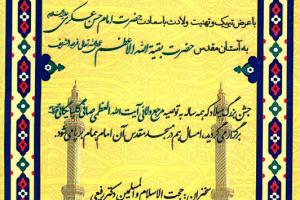 با عرض تبریک و تهنیت ولادت با سعادت حضرت امام حسن عسکری
به آستان مقدس حضرت بقیة الله الاعظم
جشن بزرگ میلاد که همه ساله به توصیه مرجع ولائی آیت الله العظمی صافی گلپایگانی
برگزار می گردید، امسال هم در مسجد مقدس آن امام همام برپا می شود
سخنران: حجت الاسلام والمسلمین دکتر رفیعی